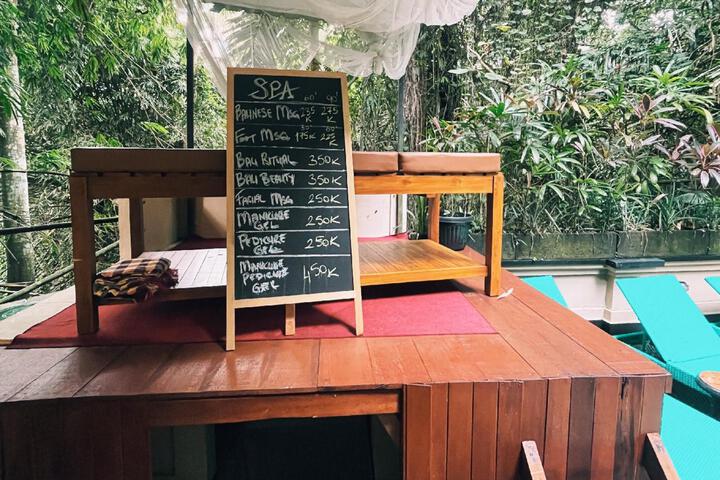 SPA
60' 90'
BALINESE MSG 235K 295K
30' 60'
FOOT MSG 175K 225K
BALI RITUAL 350K
BALI BEAUTY 350K
FACIAL MSG 250K
MANICURE GEL 250K
PEDICURE GEL 250K
MANICURE
PEDICURE GEL 450K